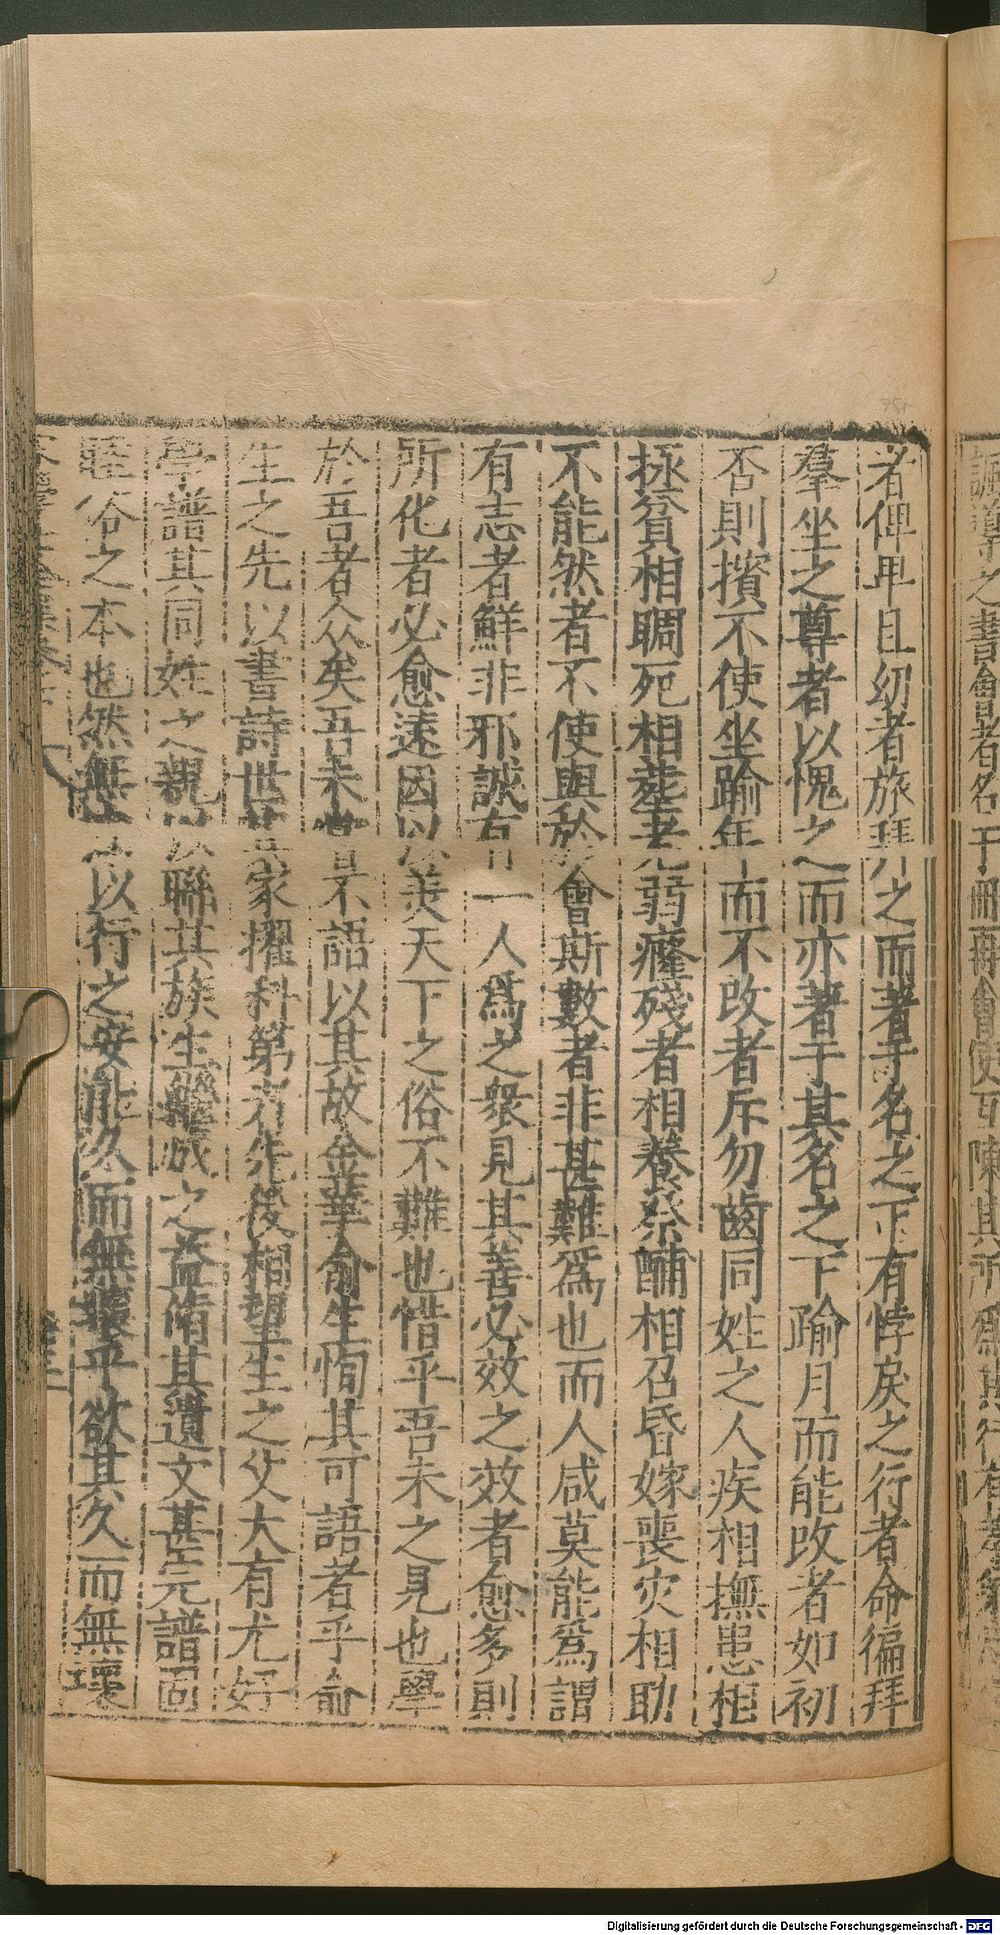 者俾卑且幼者旅拜之而著于名之下有悖戾之行者命徧拜
羣坐之尊者以愧之而亦著于其名之下踰月而能改者如初
否則擯不使坐踰年而不改者斥勿齒同姓之人疾相撫患相
拯貧相賙死相葬老弱癃殘者相養祭酺相召昏嫁喪灾相助
不能然者不使與於會斯數者非甚難爲也而人咸莫能爲謂
有志者鮮非邪誠有一人爲之衆見其善必效之效者愈多則
所化者必愈遠因以美天下之俗不難也惜乎吾未之見也學
於吾者众矣吾未嘗不語以其故金華俞生恂其可語者乎俞
生之先以書詩世其家擢科第者先後相望生之父大有尤好
學譜其同姓之親以聯其族生繼成之益脩其遺文甚完譜固
睦俗之本也然無以行之安能久而無壞乎欲其久而無壞
Digitalisierung gefördert durch die Deutsche Forschungsgemeinschaft - DFG